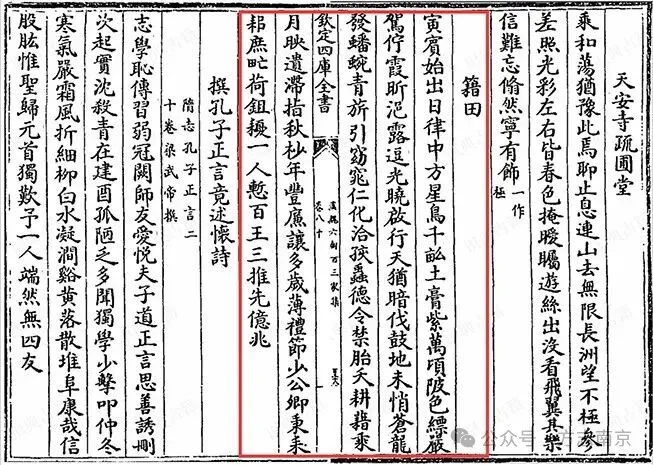 天安寺疏圃堂
乘和蕩猶豫此焉聊止息連山去無限長洲望不極參
差照光彩左右皆春色掩曖矚遊絲出沒看飛翼其樂
信難忘翛然寧有飾一作極
籍田
寅賓始出日律中方星鳥千畝土膏紫萬頃陂色縹嚴
駕佇霞昕浥露逗光曉啟行天猶暗伐鼓地未悄蒼龍
發蟠蜿青旂引窈窕仁化洽孩蟲德令禁胎夭耕籍乘
欽定四庫全書
卷八十
漢魏六朝百三家集
月映遺滯指秋杪年豐廉讓多歲薄禮節少公卿秉耒
耜庶甿荷鉏耰一人慙百王三推先億兆
撰孔子正言竟述懷詩
隋志孔子正言二
十卷梁武帝撰
志學恥傳習弱冠闕師友愛悅夫子道正言思善誘刪
次起實沈殺青在建酉孤陋乏多聞獨學少擊叩仲冬
寒氣嚴霜風折細柳白水凝澗谿黃落散堆阜康哉信
股肱惟聖歸元首獨歎予一人端然無四友
公众号 方志南京